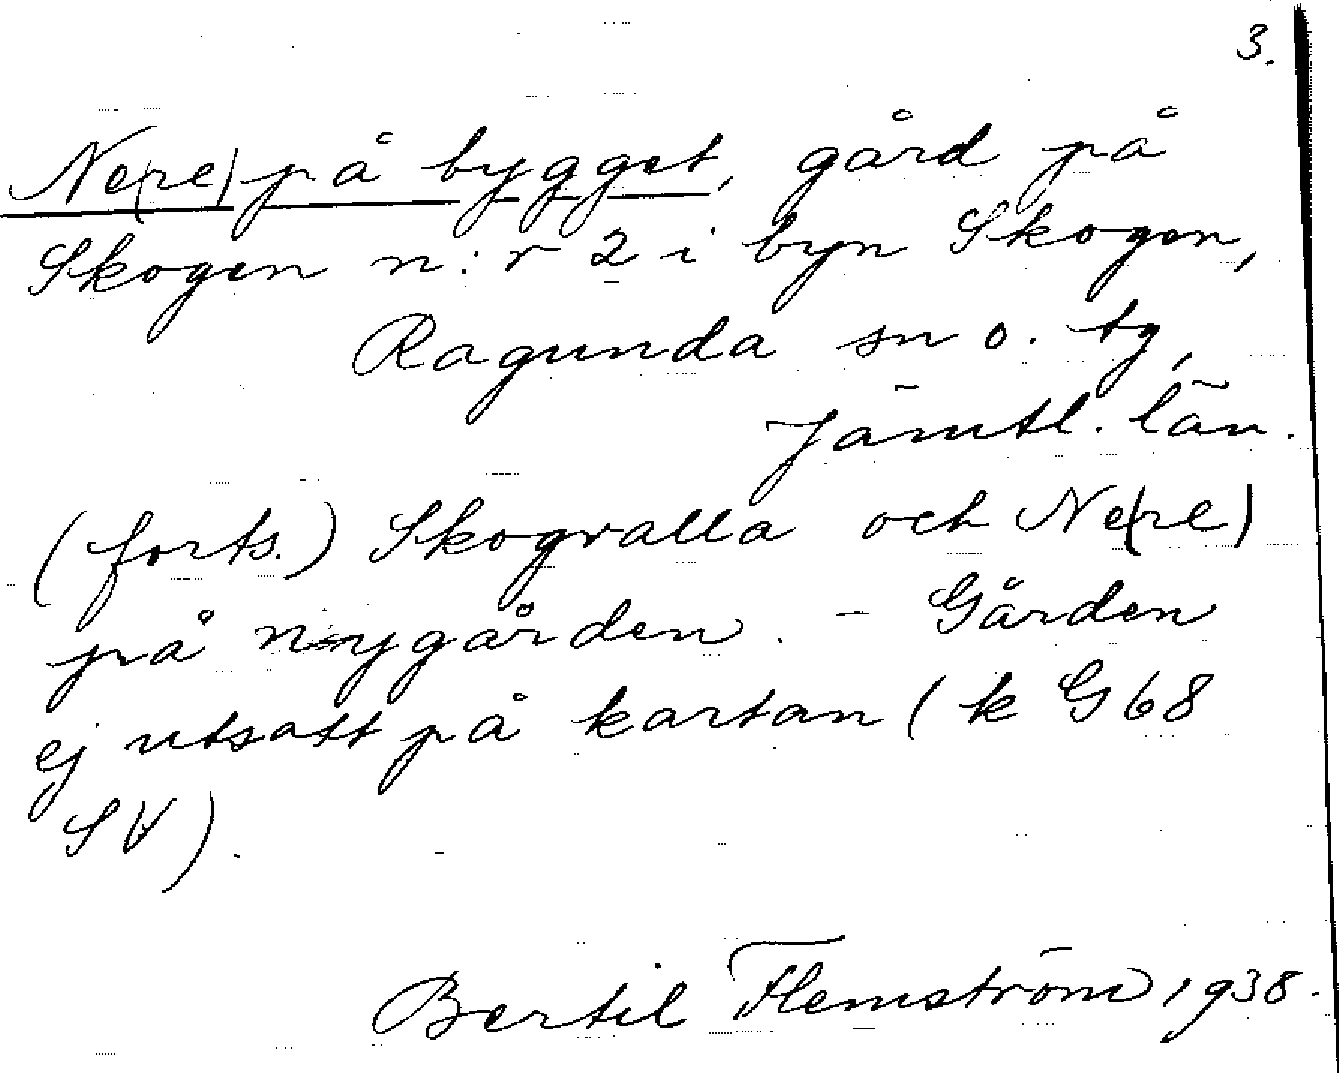 3.
Ne(re) på bygget, gård på
Skogen n:r 2 i byn Skogen,
Ragunda sn o. tg,
Jämtl. län.
(forts.) Skogvalla och Ne(re)
på nygården. - Gården
ej utsatt på kartan (k G 68
SV).
Bertil Flemström 1938.